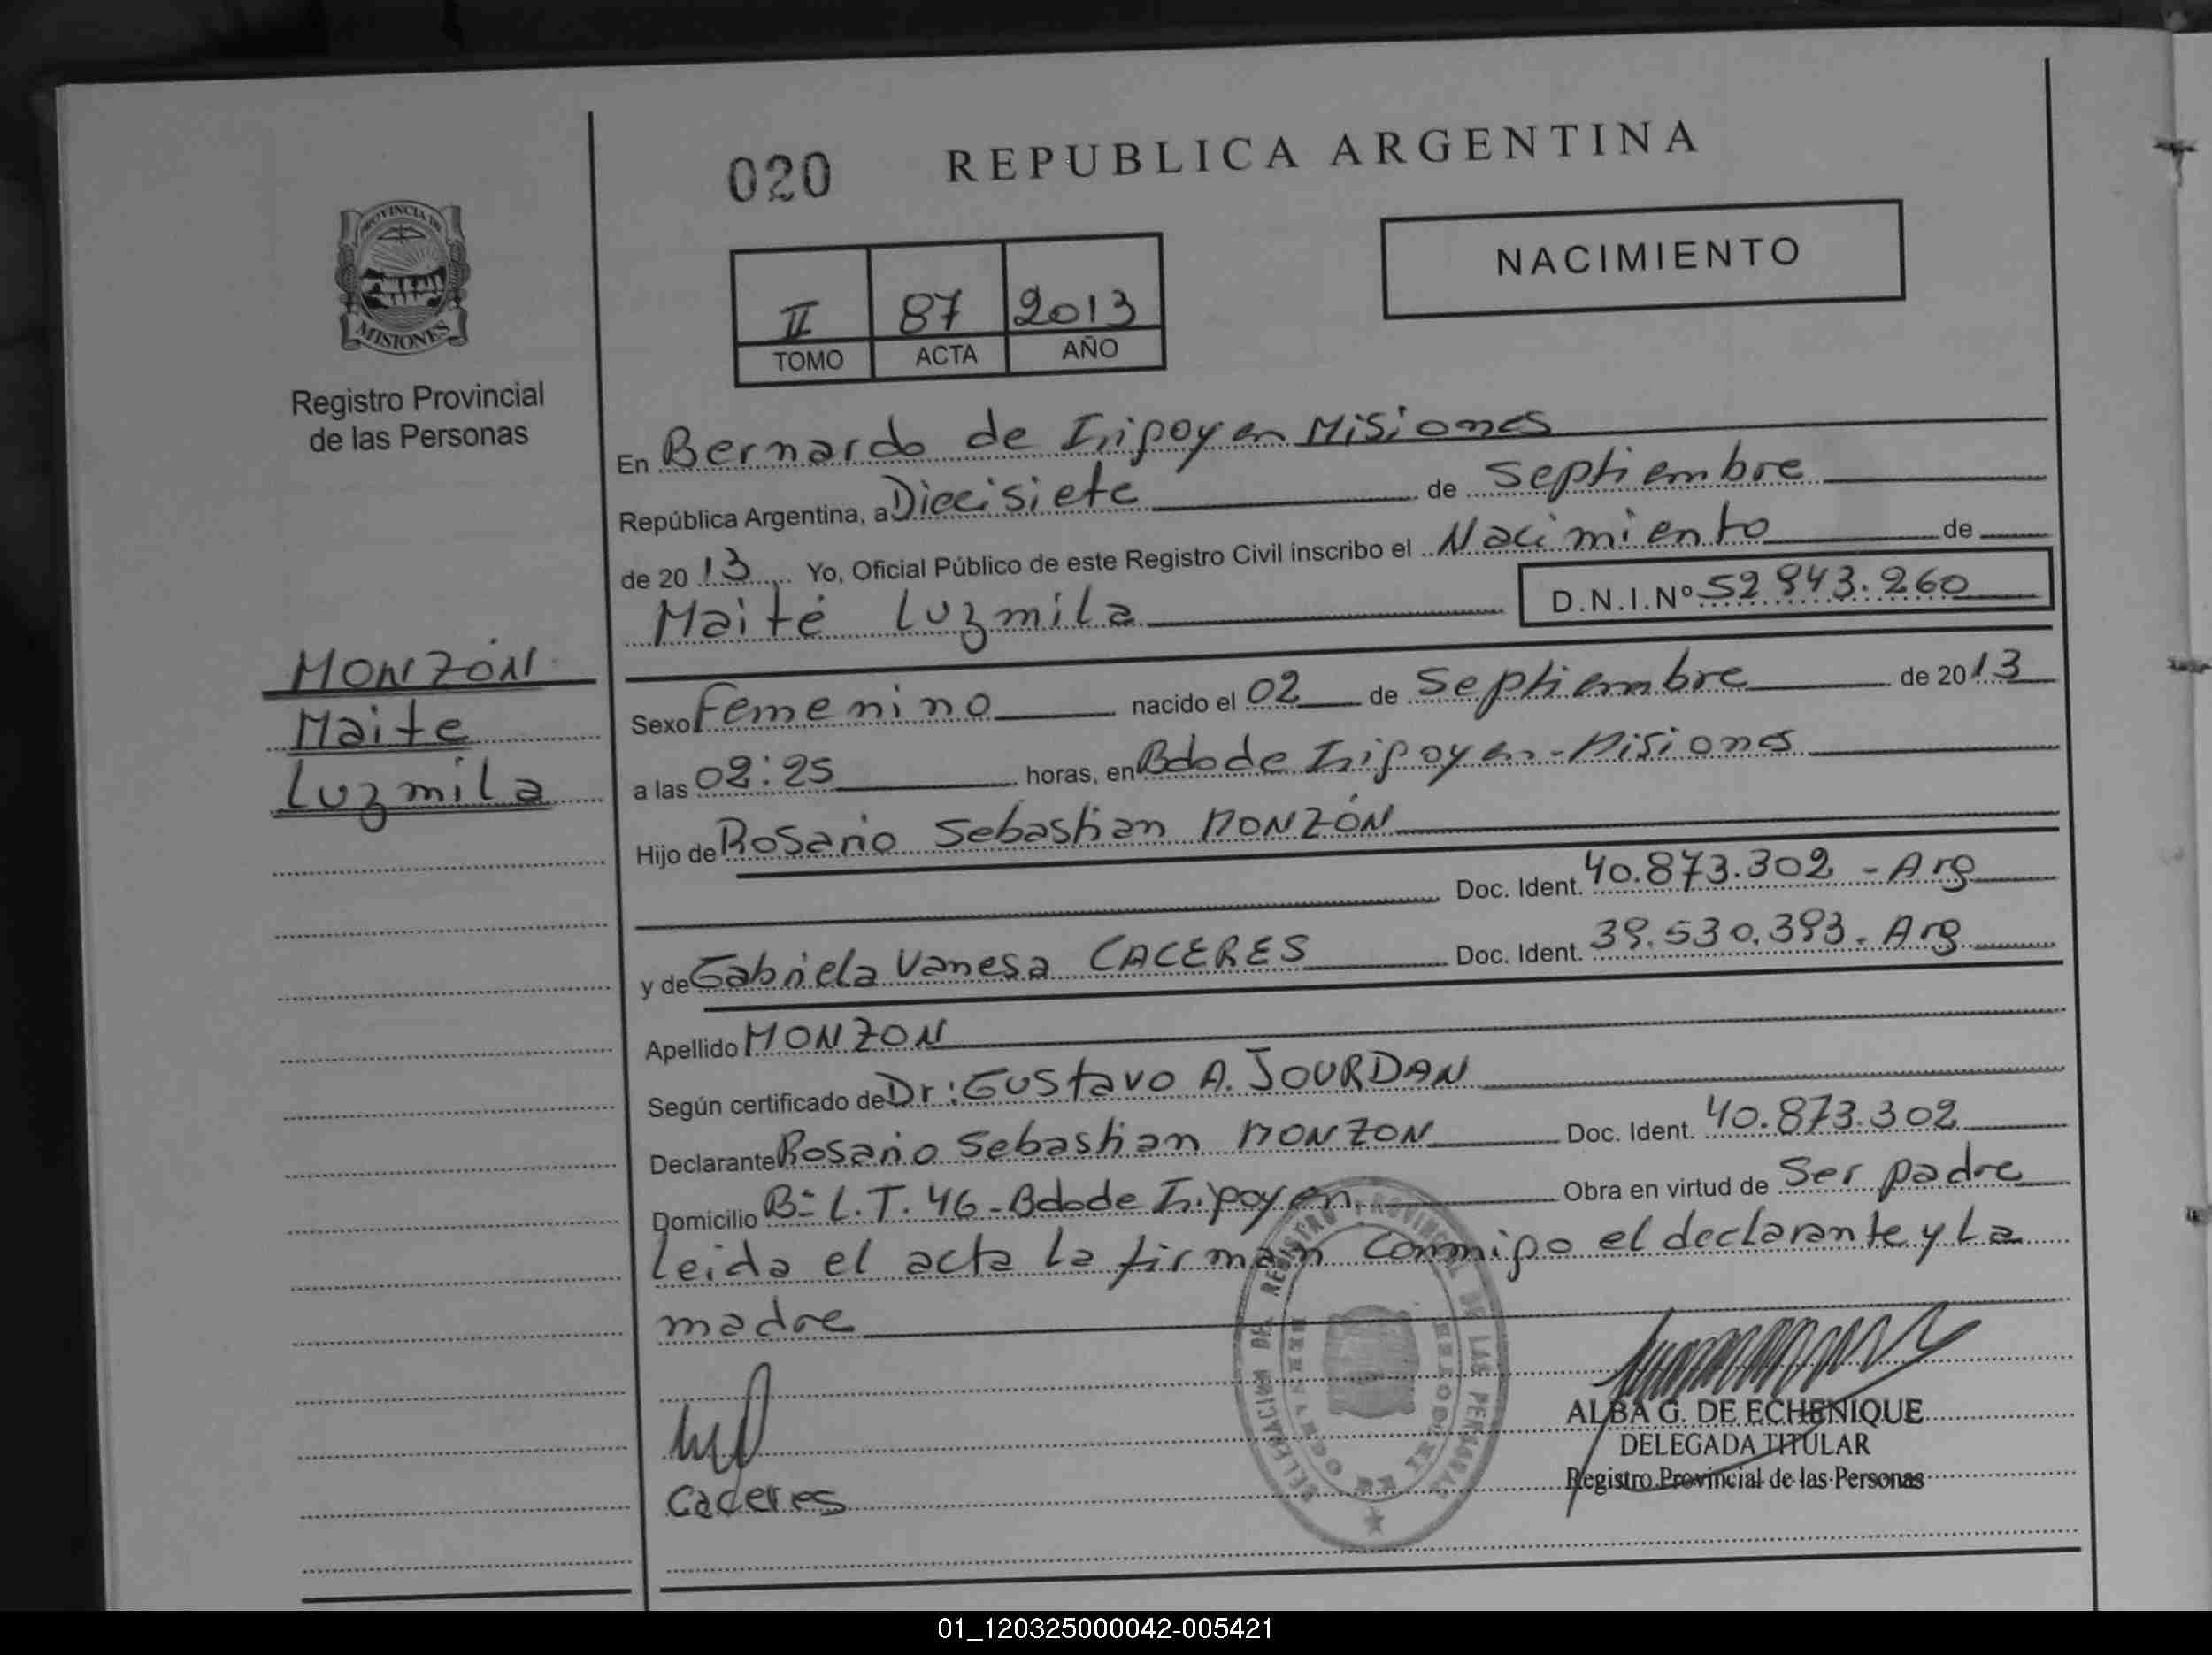 020 REPUBLICA ARGENTINA
PROVINCIA DE
MISIONES
Registro Provincial
de las Personas
NACIMIENTO
II 87 2013
TOMO ACTA AÑO
En Bernardo de Irigoyen Misiones
República Argentina, a Diecisiete de Septiembre
de 2013 Yo, Oficial Público de este Registro Civil inscribo el Nacimiento de
Maité Luzmila D.N.I.Nº 52.943.260
MONZÓN
Maite
Luzmila
Sexo Femenino nacido el 02 de Septiembre de 2013
a las 02:25 horas, en Bdo de Irigoyen - Misiones
Hijo de Rosario Sebastian MONZÓN
Doc. Ident. 40.873.302 - Arg
y de Gabriela Vanesa CACERES Doc. Ident. 39.530.393. Arg
Apellido MONZON
Según certificado de Dr: Gustavo A. JOURDAN
Declarante Rosario Sebastian MONZON Doc. Ident. 40.873.302
Domicilio Bº L.T. 46 - Bdo de Irigoyen Obra en virtud de Ser padre
Leida el acta la firman conmigo el declarante y la
madre
DELEGACION DEL REGISTRO PROVINCIAL DE LAS PERSONAS
ALBA G. DE ECHENIQUE
DELEGADA TITULAR
Registro Provincial de las Personas
Caceres
01_120325000042-005421